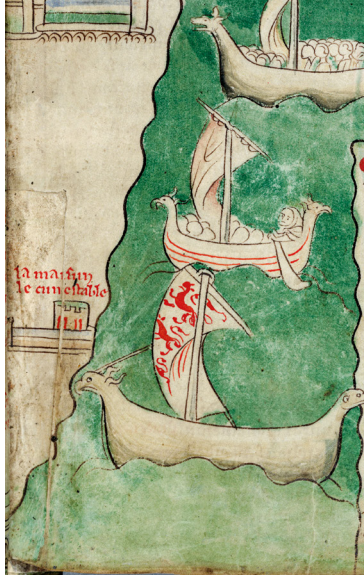 la maisun
le cunestable